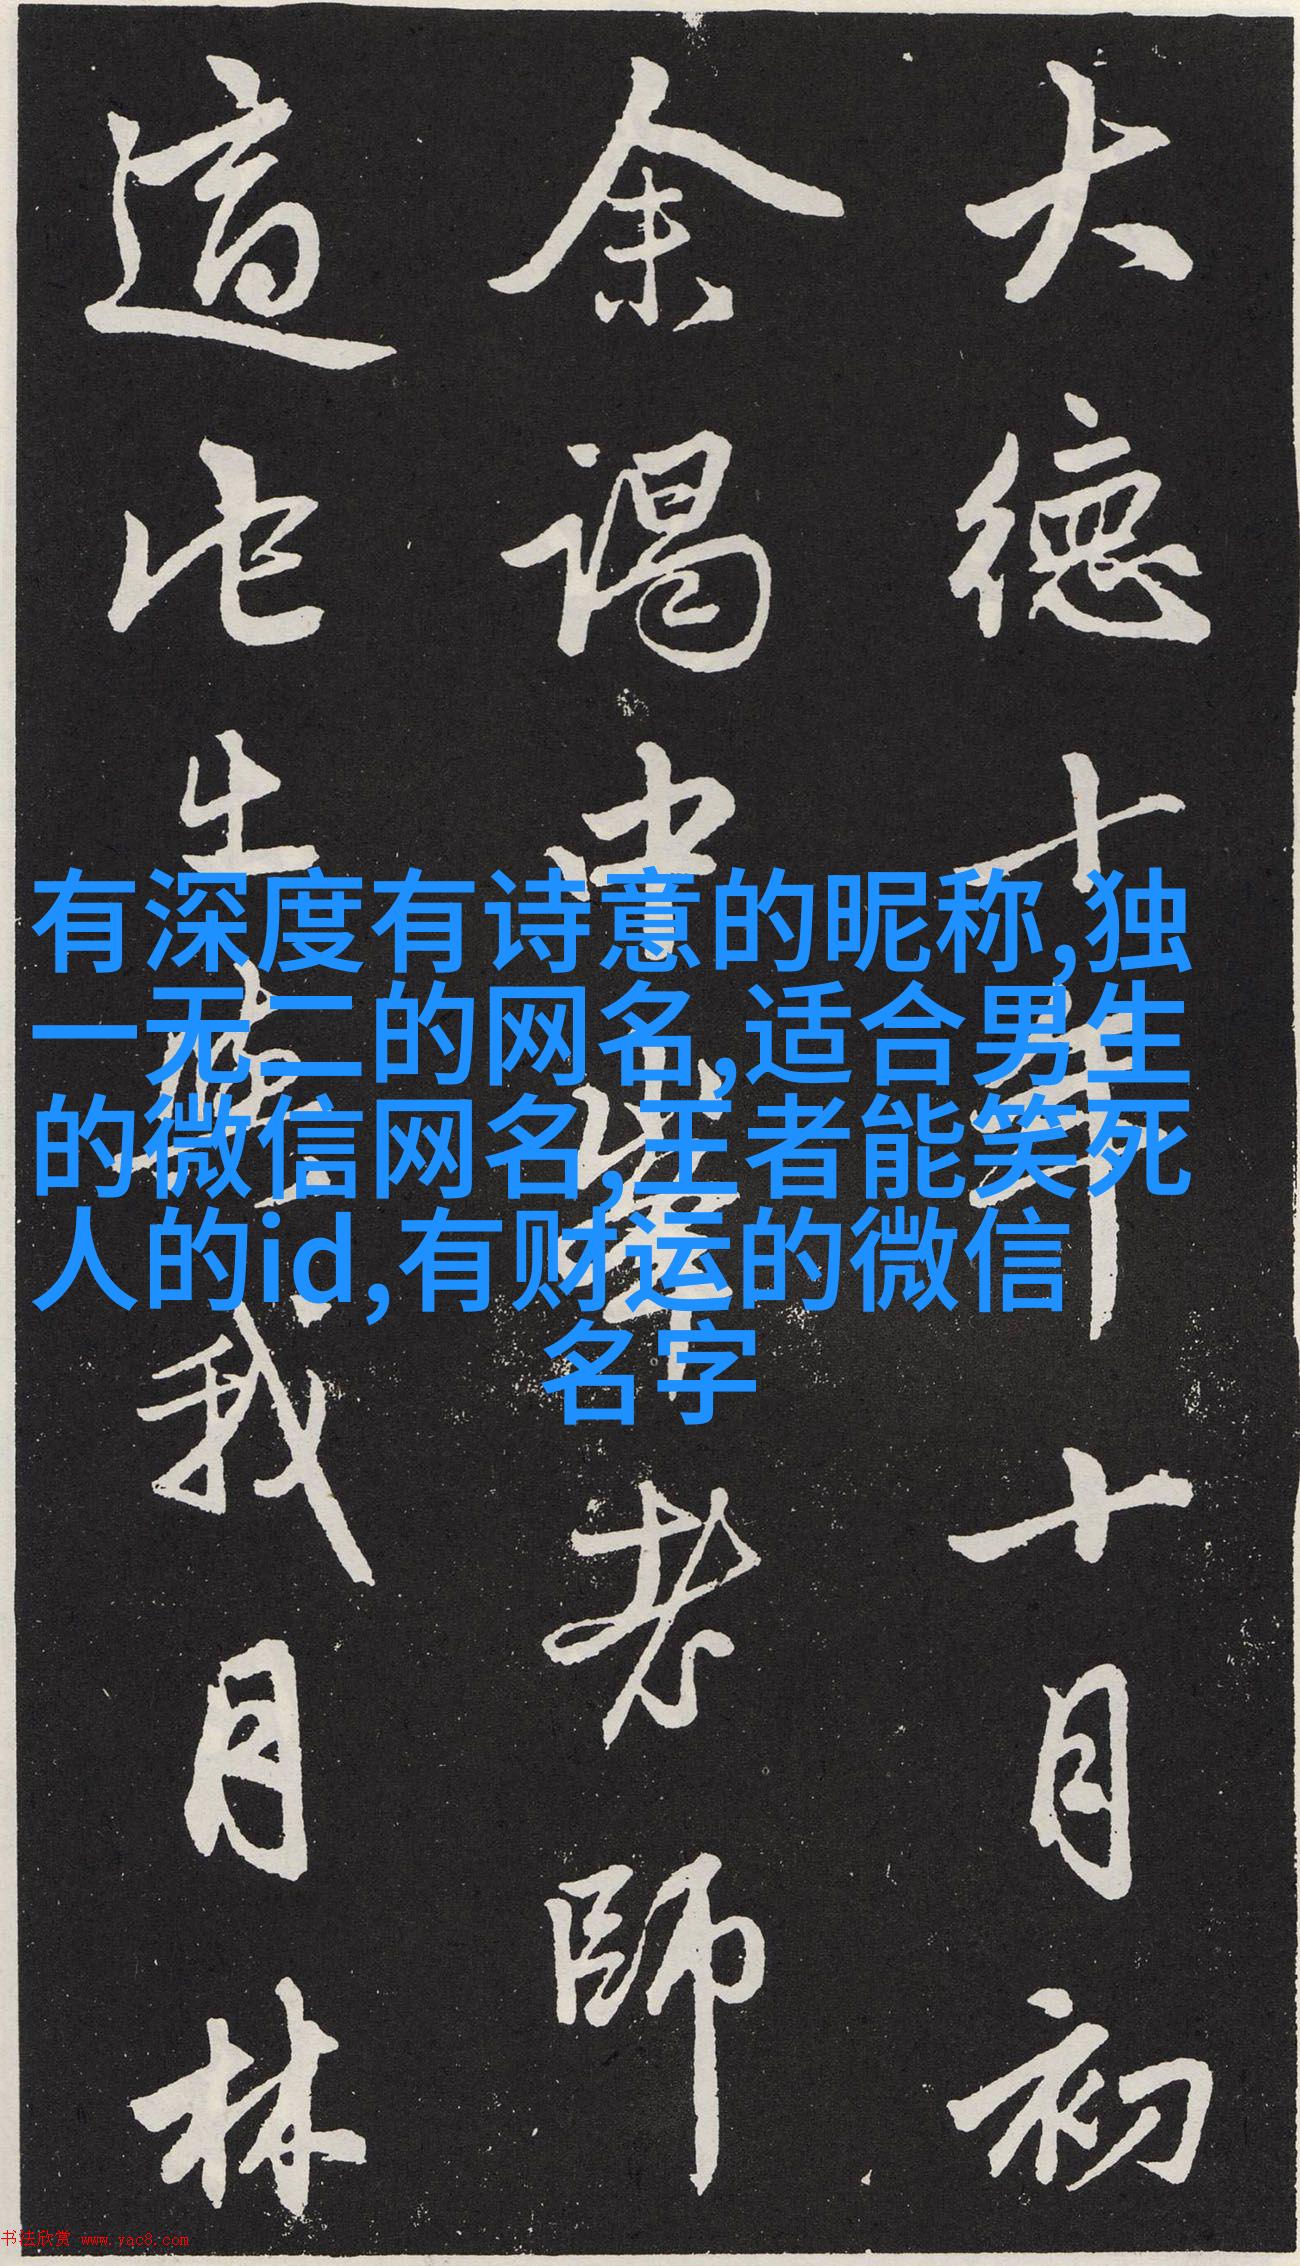 大德十年十月初
余謁中峯老師
適此生我月林
有深度有诗意的昵称,独
一无二的网名,适合男生
的微信网名,王者能笑死
人的id,有财运的微信
名字
书法欣赏 www.yac8.com